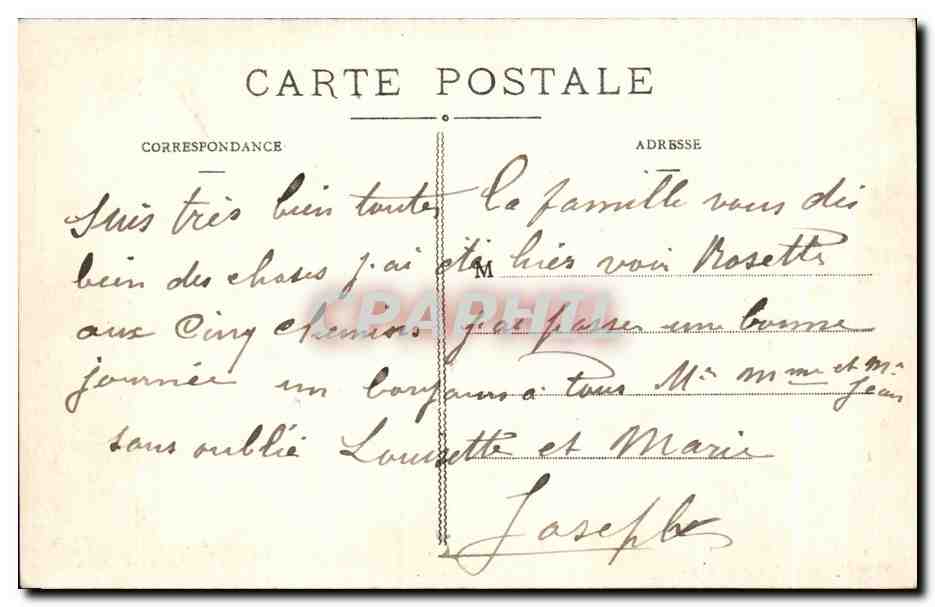 CARTE POSTALE
CORRESPONDANCE
ADRESSE
suis très bien toutes la famille vous dis
bien des choses j'ai été hier voir Rosette
M
aux Cinq Chemins j'ai passer une bonne
journée un bonjours a tous Mr Mme et Mr Jean
sans oublié Louisette et Marie
Joseph
CPAPHIL